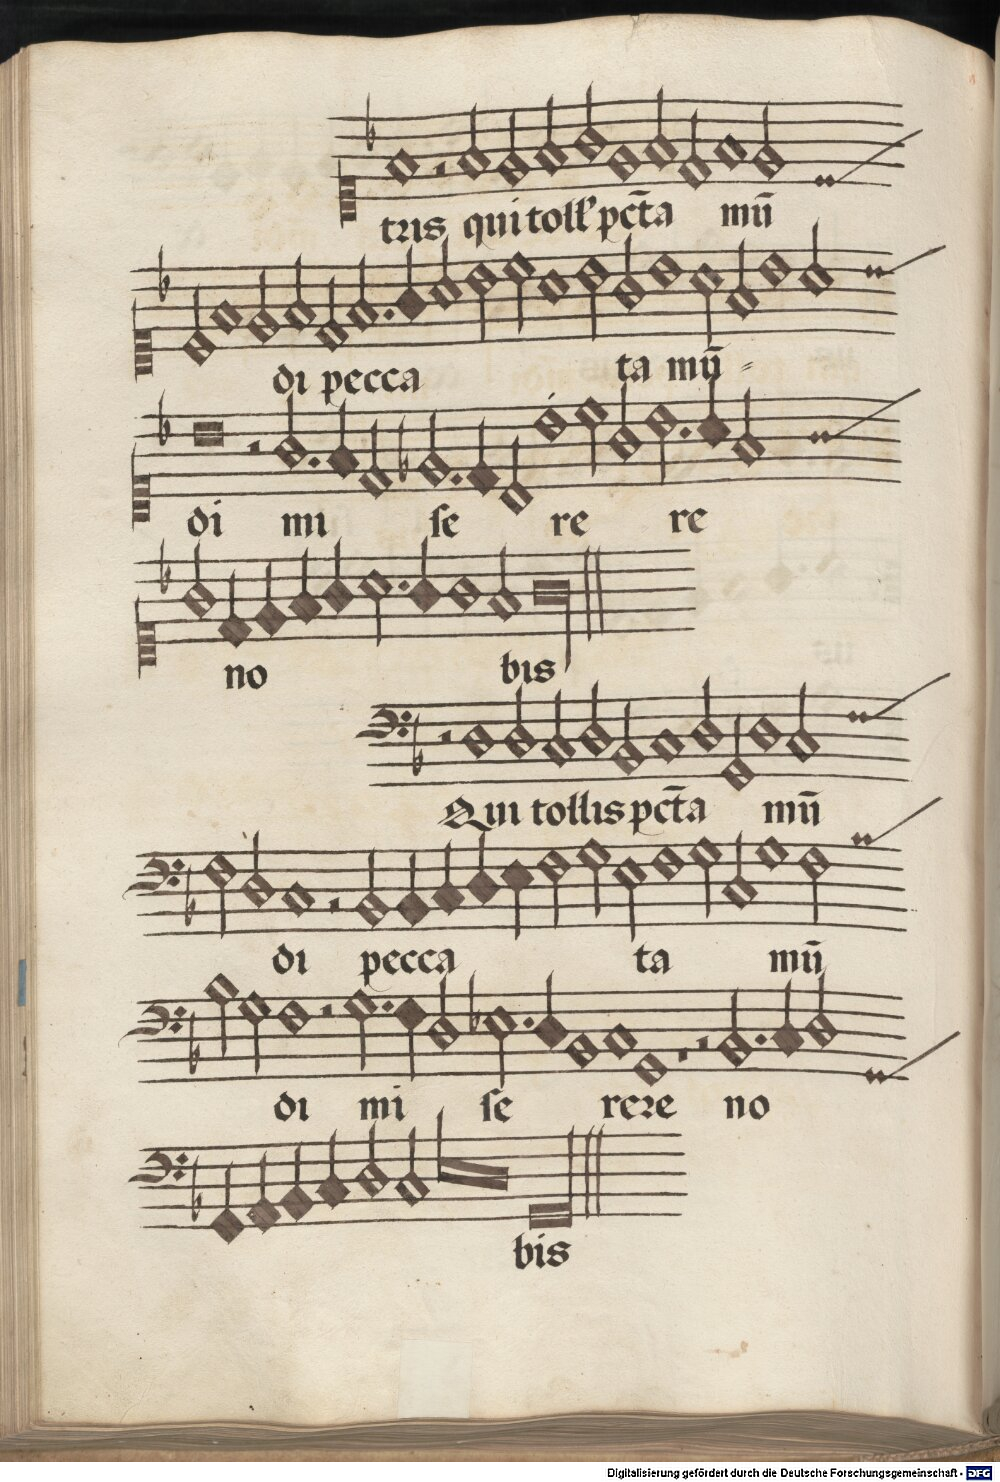 tris qui toll' pc̄ta mū
di pecca ta mū
di mi se re re
no bis
Qui tollis pc̄ta mū
di pecca ta mū
di mi se rere no
bis
Digitalisierung gefördert durch die Deutsche Forschungsgemeinschaft - DFG